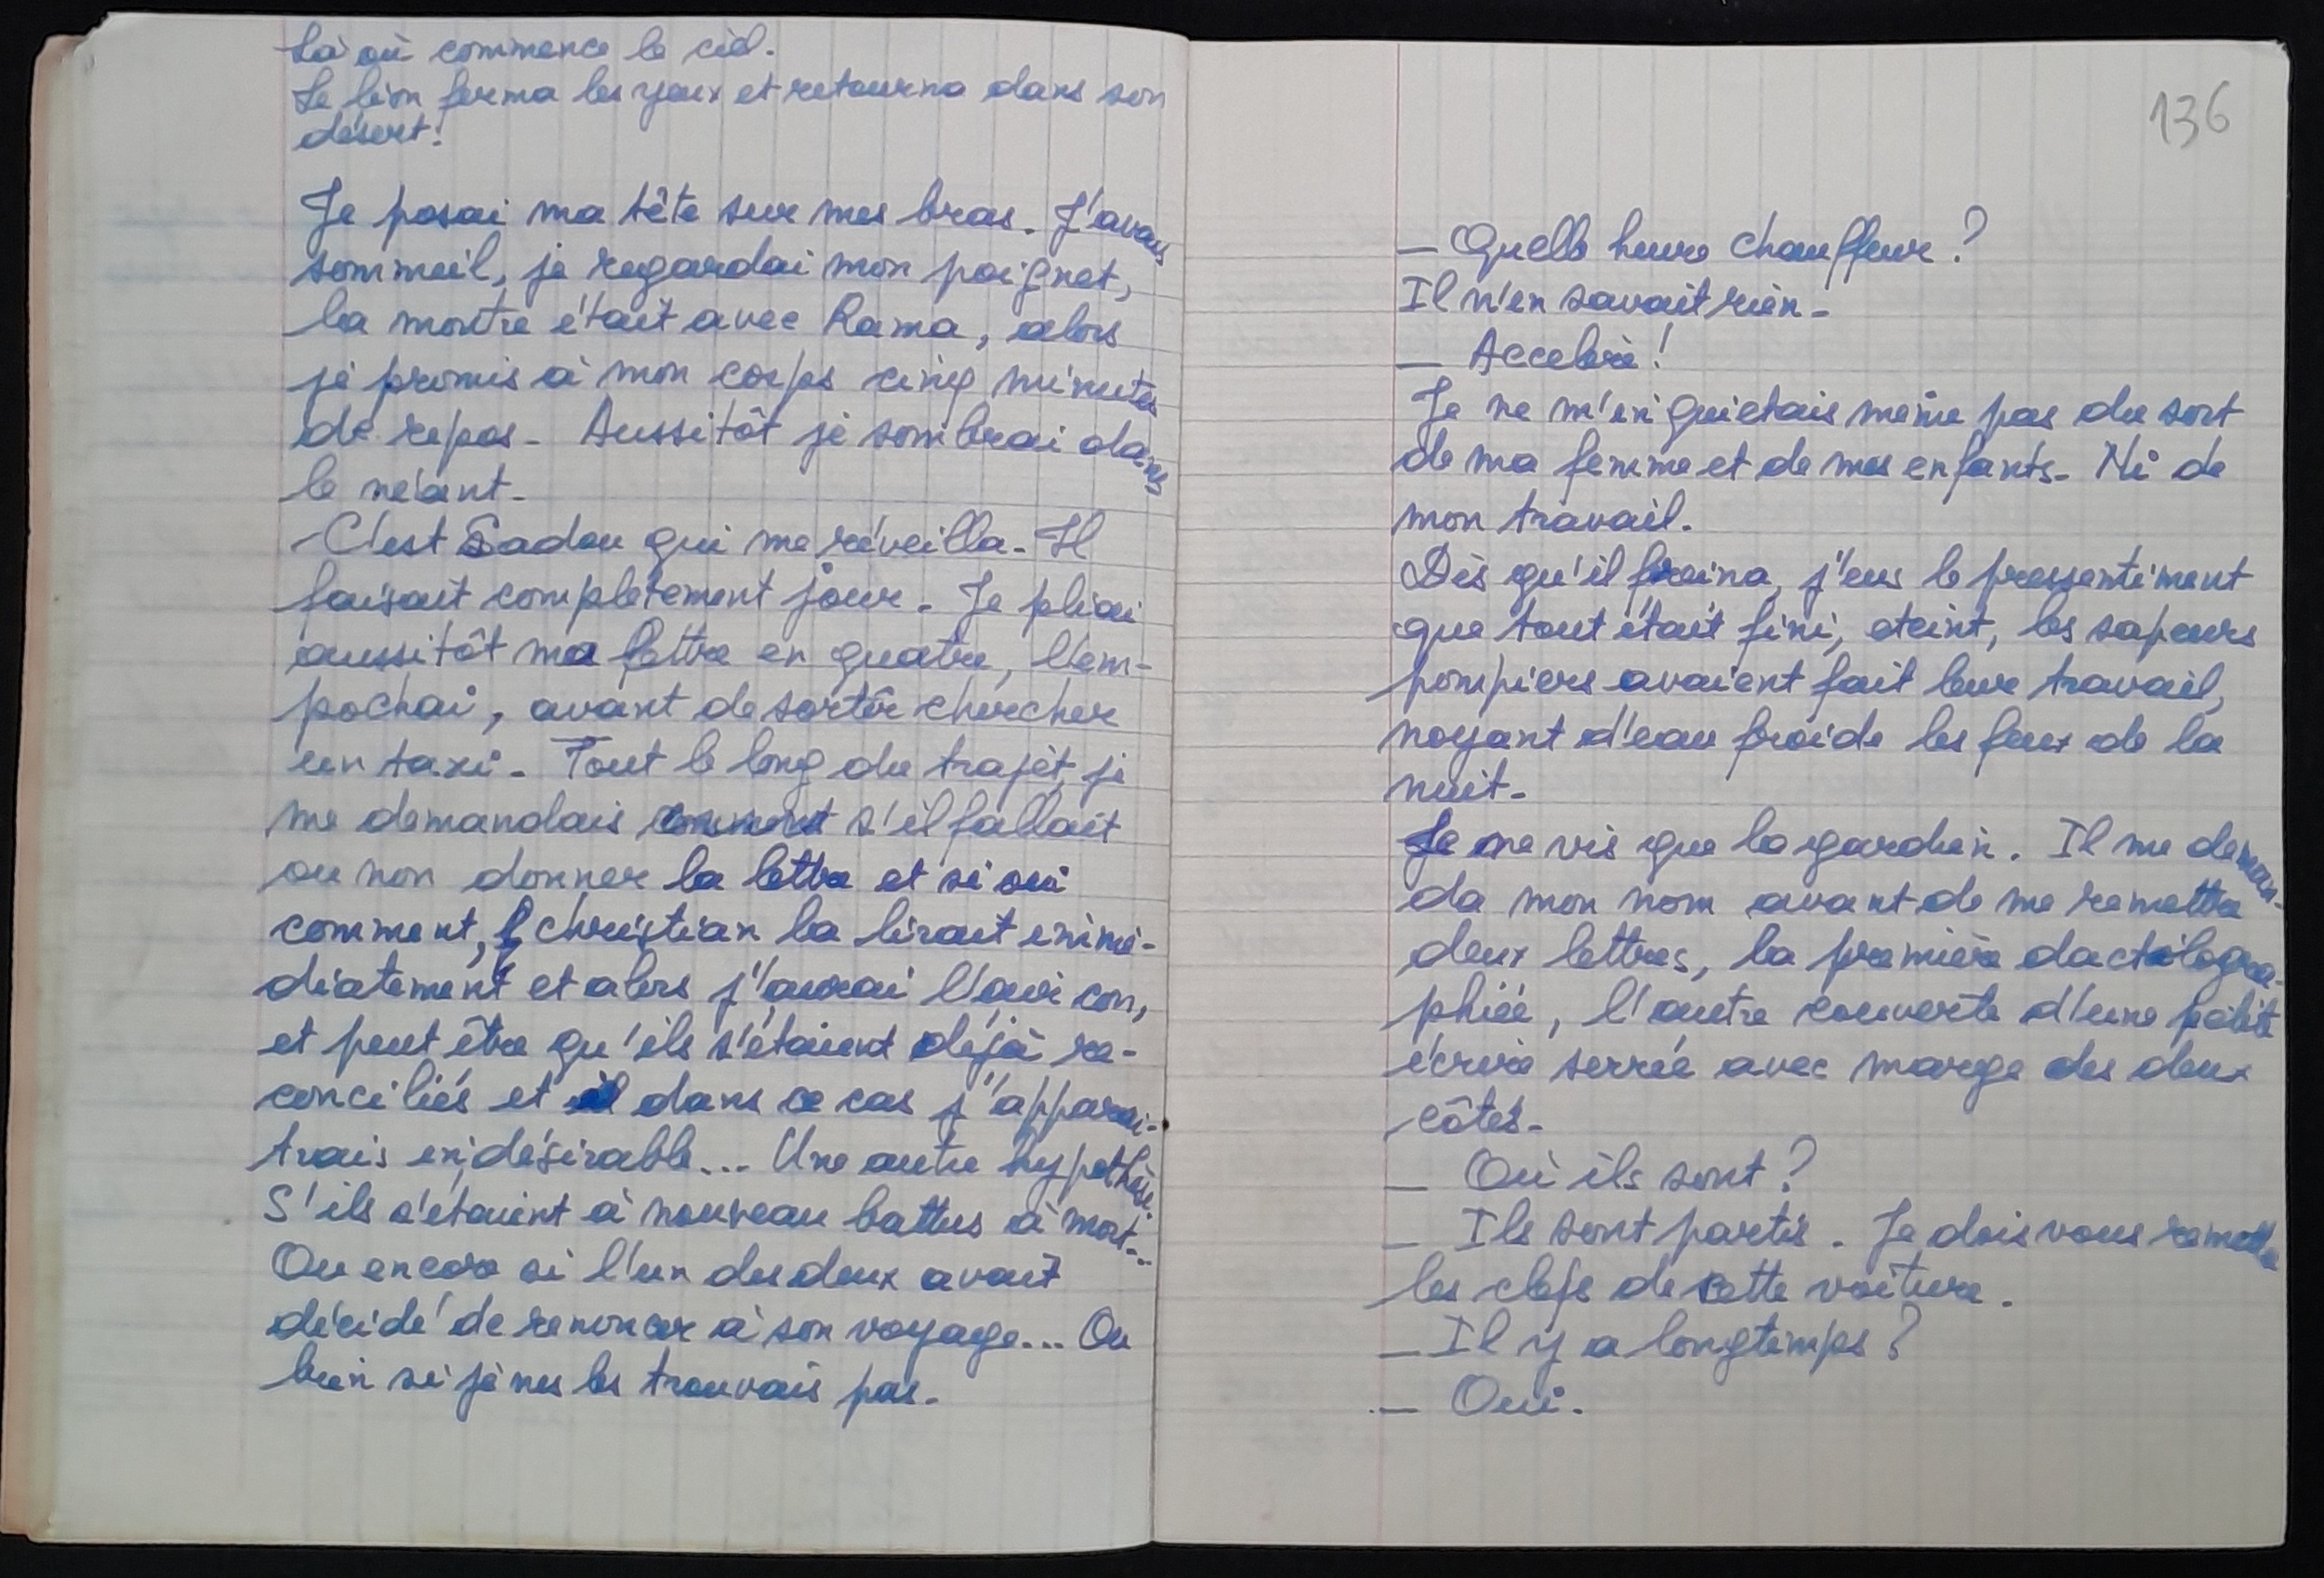 Là où commence le ciel.
Le lion ferma les yeux et retourna dans son
désert.
Je posai ma tête sur mes bras. J'avais
sommeil, je regardai mon poignet,
la montre était avec Rama, alors
je promis à mon corps cinq minutes
de repos. Aussitôt je sombrai dans
le néant.
C'est Sadou qui me réveilla. Il
faisait complètement jour. Je pliai
aussitôt ma lettre en quatre, l'em-
pochai, avant de sortir chercher
un taxi. Tout le long du trajet, je
me demandais comment s'il fallait
ou non donner la lettre et si oui
comment, Christian la lirait immé-
diatement et alors j'aurai l'air con,
et peut être qu'ils s'étaient déjà re-
conciliés et dans ce cas j'apparai-
trais indésirable... Une autre hypothèse.
S'ils s'étaient à nouveau battus à mort...
Ou encore si l'un des deux avait
décidé de renoncer à son voyage... Ou
bien si je nes les trouvais pas.
136
— Quelle heure chauffeur ?
Il n'en savait rien.
— Accelère !
Je ne m'inquietais même pas du sort
de ma femme et de mes enfants. Ni de
mon travail.
Dès qu'il freina, j'eus le pressentiment
que tout était fini, eteint, les sapeurs
pompiers avaient fait leur travail,
noyant d'eau froide les feux de la
nuit.
Je ne vis que le gardien. Il me deman-
da mon nom avant de me remettre
deux lettres, la première dactilogra-
phiée, l'autre couverte d'une petite
écrire serrée avec marge des deux
côtés.
— Où ils sont ?
— Ils sont partis. Je dois vous remettre
les clefs de cette voiture.
— Il y a longtemps ?
— Oui.